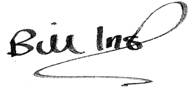 Bill Ing